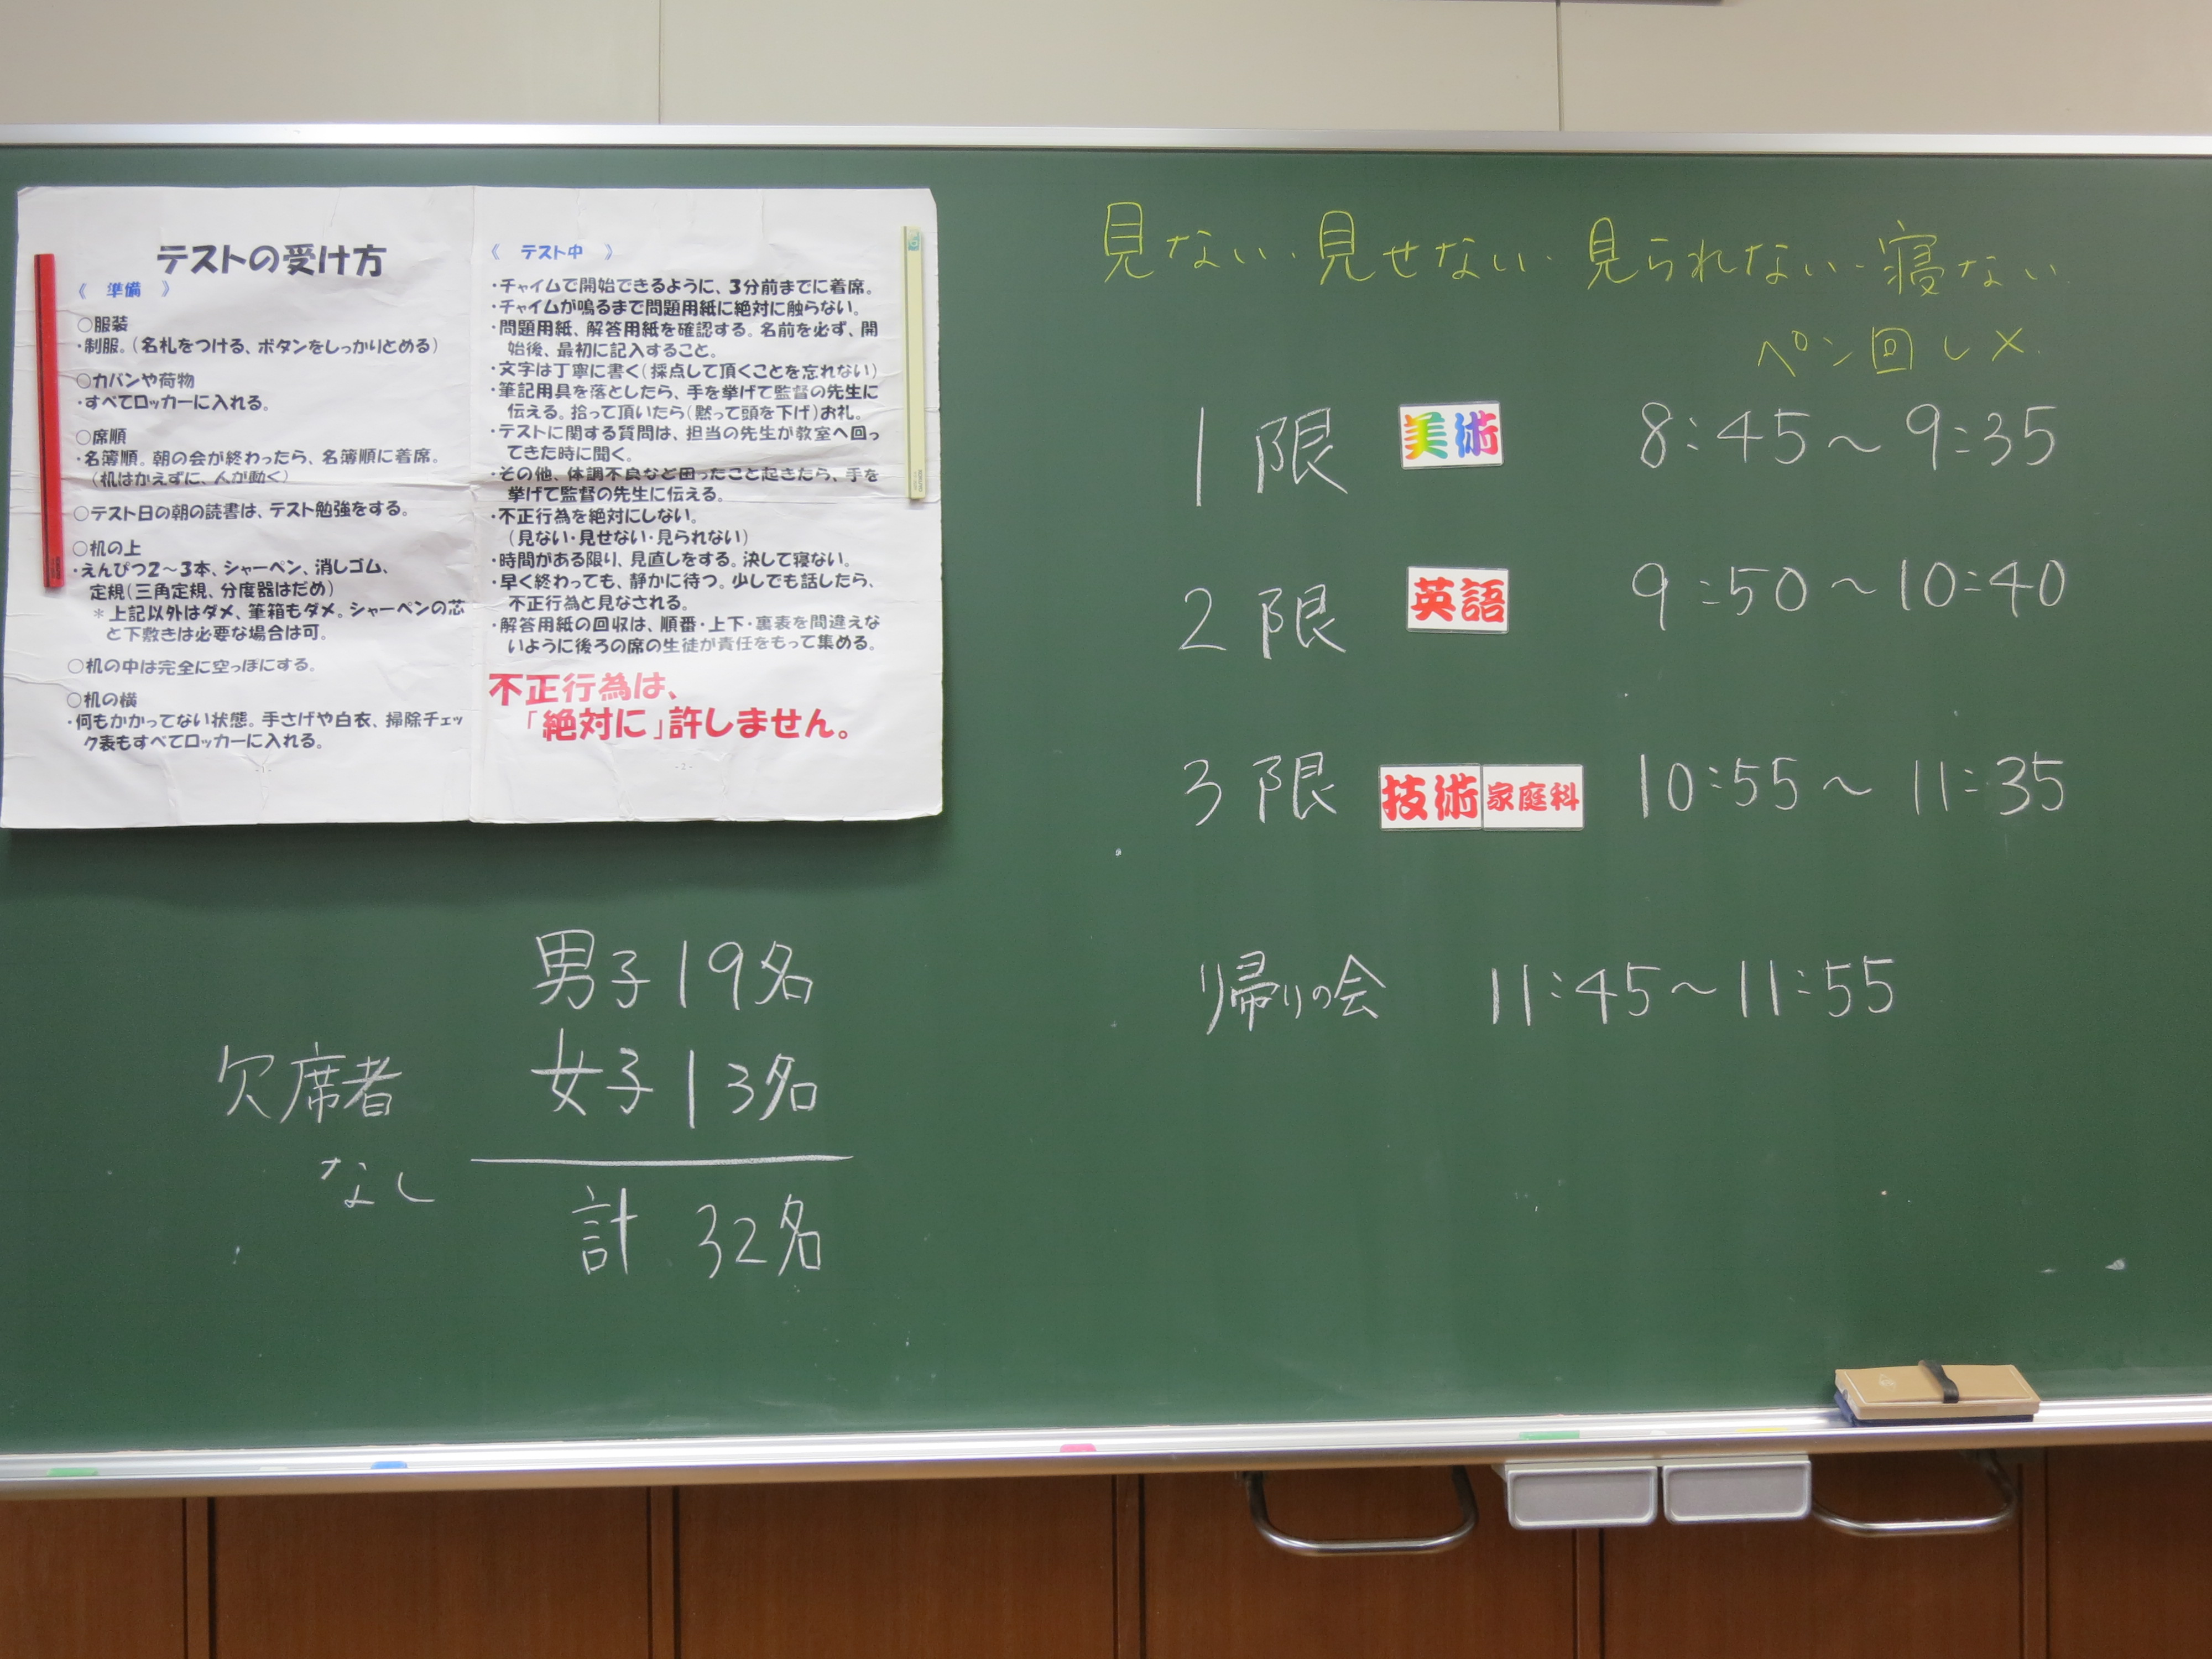 テストの受け方
《 準備 》
○服装
・制服。(名札をつける、ボタンをしっかりとめる)
○カバンや荷物
・すべてロッカーに入れる。
○席順
・名簿順。朝の会が終わったら、名簿順に着席。
(机はかえずに、人が動く)
○テスト日の朝の読書は、テスト勉強をする。
○机の上
・えんぴつ2~3本、シャーペン、消しゴム、
定規(三角定規、分度器はだめ)
＊上記以外はダメ、筆箱もダメ。シャーペンの芯
と下敷きは必要な場合は可。
○机の中は完全に空っぽにする。
○机の横
・何もかかってない状態。手さげや白衣、掃除チェッ
ク表もすべてロッカーに入れる。
-1-
《 テスト中 》
・チャイムで開始できるように、3分前までに着席。
・チャイムが鳴るまで問題用紙に絶対に触らない。
・問題用紙、解答用紙を確認する。名前を必ず、開
始後、最初に記入すること。
・文字は丁寧に書く(採点して頂くことを忘れない)
・筆記用具を落としたら、手を挙げて監督の先生に
伝える。拾って頂いたら(黙って頭を下げ)お礼。
・テストに関する質問は、担当の先生が教室へ回っ
てきた時に聞く。
・その他、体調不良など困ったこと起きたら、手を
挙げて監督の先生に伝える。
・不正行為を絶対にしない。
(見ない・見せない・見られない)
・時間がある限り、見直しをする。決して寝ない。
・早く終わっても、静かに待つ。少しでも話したら、
不正行為と見なされる。
・解答用紙の回収は、順番・上下・裏表を間違えな
いように後ろの席の生徒が責任をもって集める。
不正行為は、
「絶対に」許しません。
-2-
見ない・見せない・見られない・寝ない
ペン回し×
1限 美術 8:45~9:35
2限 英語 9:50~10:40
3限 技術 家庭科 10:55~11:35
帰りの会 11:45~11:55
欠席者
なし
男子19名
女子13名
計 32名